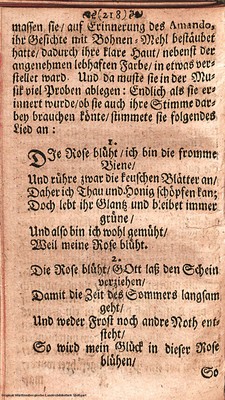 (218)
massen sie/ auf Erinnerung des Amando-
ihr Gesichte mit Bohnen-Mehl bestäubet
hatte/ dadurch ihre klare Haut/ nebenst der
angenehmen lebhaften Farbe/ in etwas ver-
stellet ward. Und da muste sie in der Mu-
sik viel Proben ablegen: Endlich als sie er-
innert wurde/ ob sie auch ihre Stimme dar-
bey brauchen könte/ stimmete sie folgendes
Lied an:
1.
DIe Rose blüht/ ich bin die fromme
Biene/
Und rühre zwar die keuschen Blätter an/
Daher ich Thau und Honig schöpfen kan;
Doch lebt ihr Glantz und bleibet immer
grüne/
Und also bin ich wohl gemüht/
Weil meine Rose blüht.
2.
Die Rose blüht/ GOtt laß den Schein
verziehen/
Damit die Zeit des Sommers langsam
geht/
Und weder Frost noch andre Noth ent-
steht/
So wird mein Glück in dieser Rose
blühen/
So